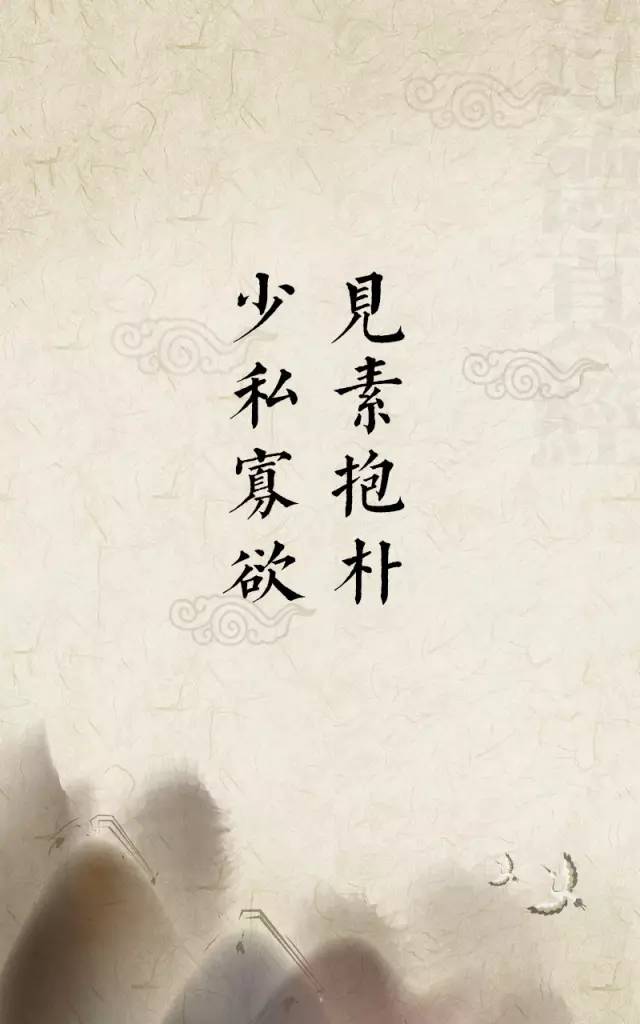 見素抱朴
少私寡欲